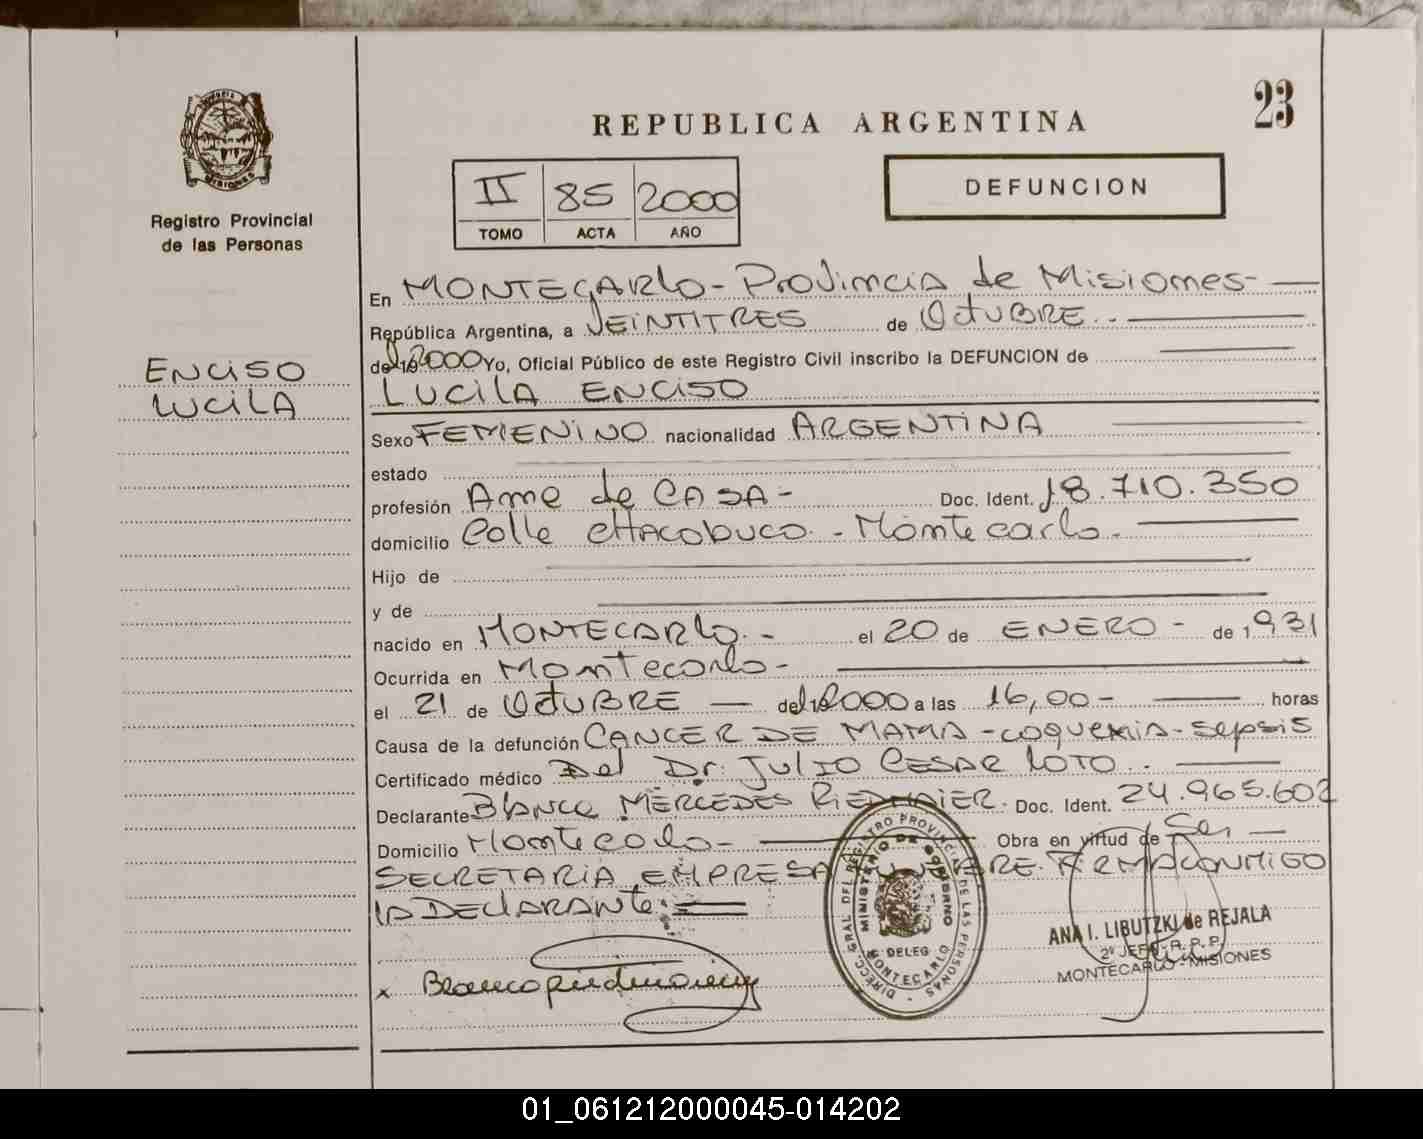 23
REPUBLICA ARGENTINA
DEFUNCION
II 85 2000
TOMO ACTA AÑO
Registro Provincial
de las Personas
ENCISO
LUCILA
En MONTECARLO - Provincia de Misiones -
República Argentina, a VEINTITRES de OctUBRE
del 2000 Yo, Oficial Público de este Registro Civil inscribo la DEFUNCION de
LUCILA ENCISO
Sexo FEMENINO nacionalidad ARGENTINA
estado
profesión Ama de CASA - Doc. Ident. 18.710.350
domicilio Calle CHACABUCO - Montecarlo -
Hijo de
y de
nacido en MONTECARLO - el 20 de ENERO - de 1931
Ocurrida en Montecarlo -
el 21 de OctUBRE del 2000 a las 16,00 - horas
Causa de la defunción CANCER DE MAMA - caquexia - sepsis
Certificado médico Del Dr. JULIO CESAR LOTO
Declarante BlancA MERCEDES Doc. Ident. 24.965.602
Domicilio Montecarlo - Obra en virtud de Ser
SECRETARIA EMPRESA FIRMA CONMIGO
LA DECLARANTE.
DIRECC. GRAL DEL REGISTRO PROVINCIAL DE LAS PERSONAS
MINISTERIO DE GOBIERNO
DELEG
MONTECARLO
ANA I. LIBUTZKI de REJALA
2º JEFE - R. P. P.
MONTECARLO - MISIONES
x
01_061212000045-014202